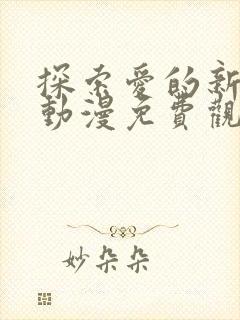 探索愛的新
動漫免費觀
妙朵朵